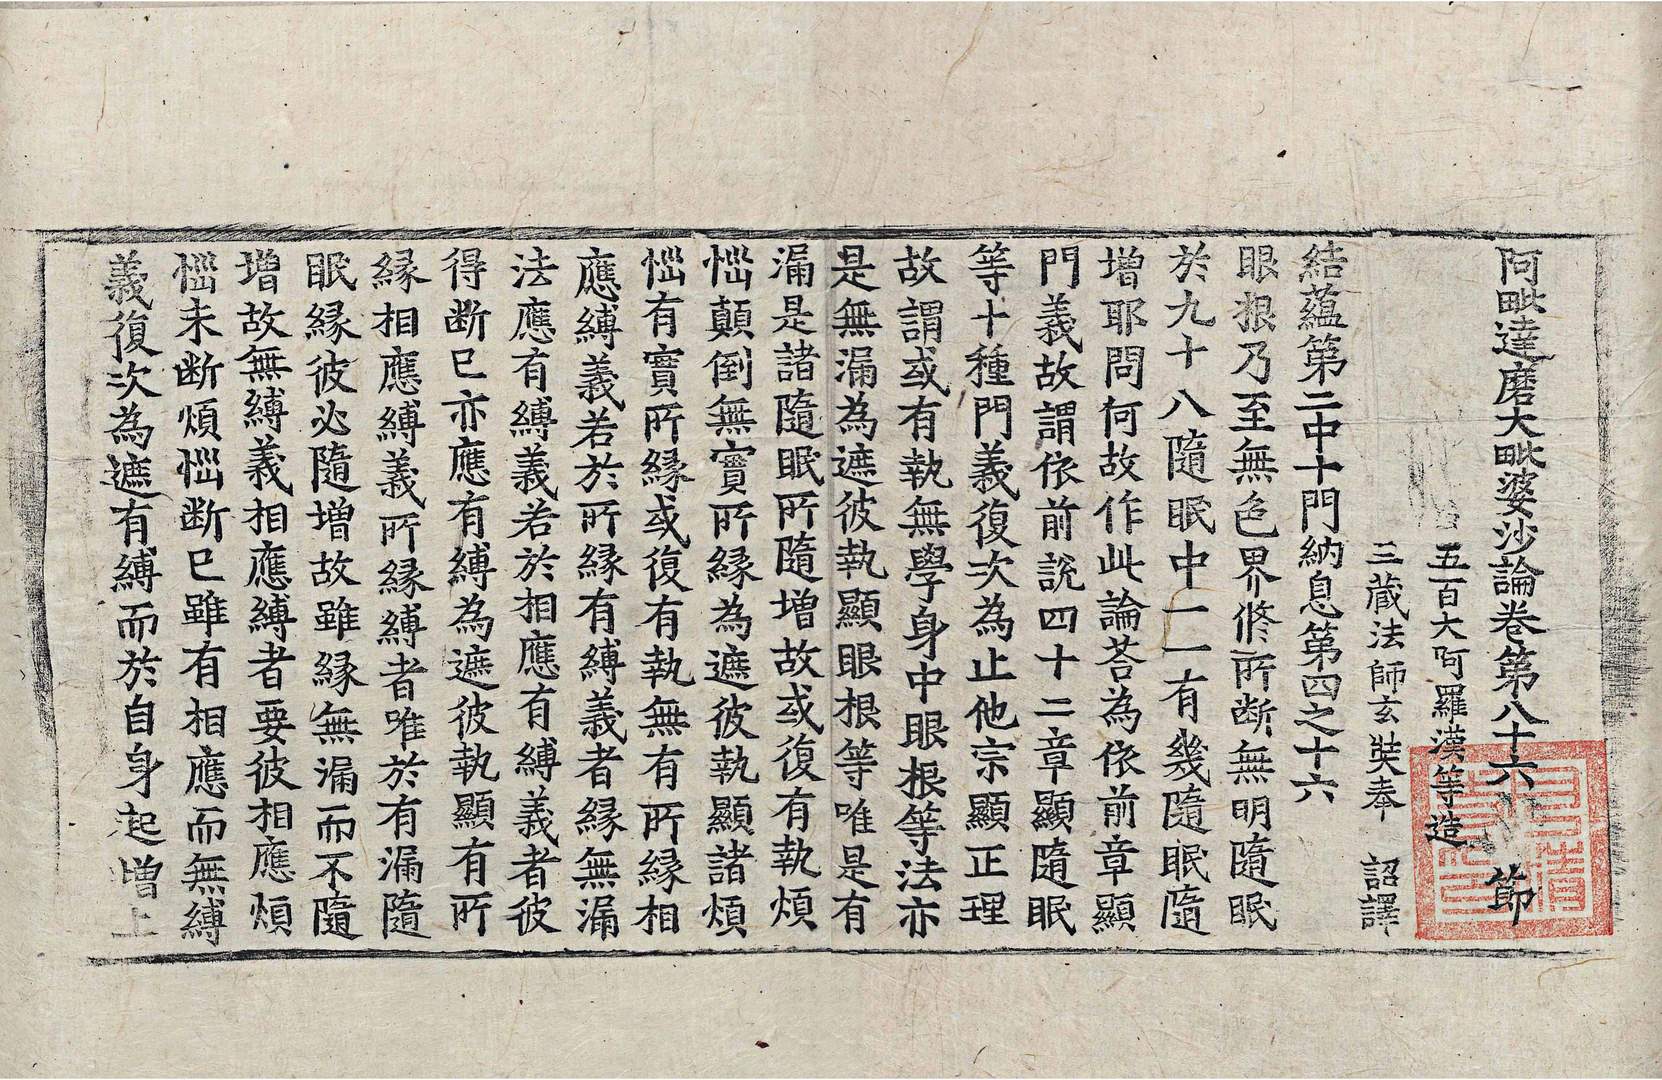 阿毗達磨大毗婆沙論卷第八十六 節
五百大阿羅漢等造
三藏法師玄奘奉 詔譯
結蘊第二中十門納息第四之十六
眼根乃至無色界修所断無明隨眠
於九十八隨眠中一一有幾隨眠隨
增耶問何故作此論荅為依前章顯
門義故謂依前說四十二章顯隨眠
等十種門義復次為止他宗顯正理
故謂或有執無學身中眼根等法亦
是無漏為遮彼執顯眼根等唯是有
漏是諸隨眠所隨增故或復有執煩
惱顛倒無實所縁為遮彼執顯諸煩
惱有實所縁或復有執無有所縁相
應縛義若於所縁有縛義者縁無漏
法應有縛義若於相應有縛義者彼
得断已亦應有縛為遮彼執顯有所
縁相應縛義所縁縛者唯於有漏隨
眠縁彼必隨增故雖縁無漏而不隨
增故無縛義相應縛者要彼相應煩
惱未断煩惱断已雖有相應而無縛
義復次為遮有縛而於自身起增上